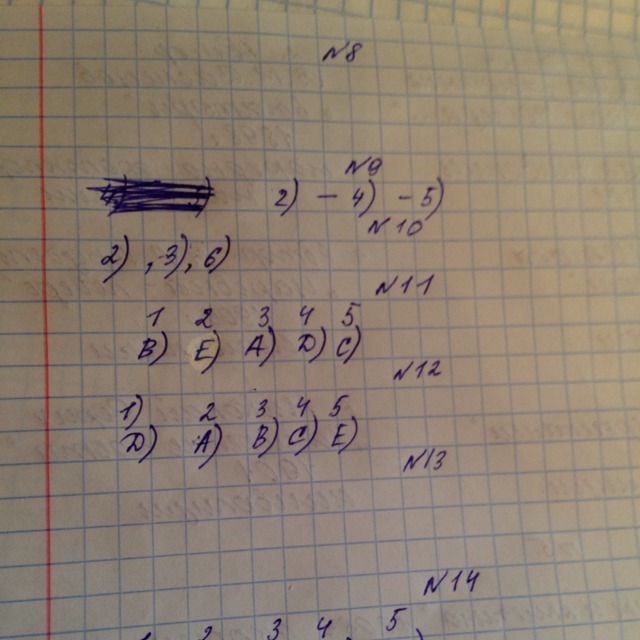 N8
N9
2) - 4) - 5)
N10
2) , 3), 6)
N11
1 2 3 4 5
B) E) A) D) C)
N12
1) 2 3 4 5
D) A) B) C) E)
N13
N14
1 2 3 4 5